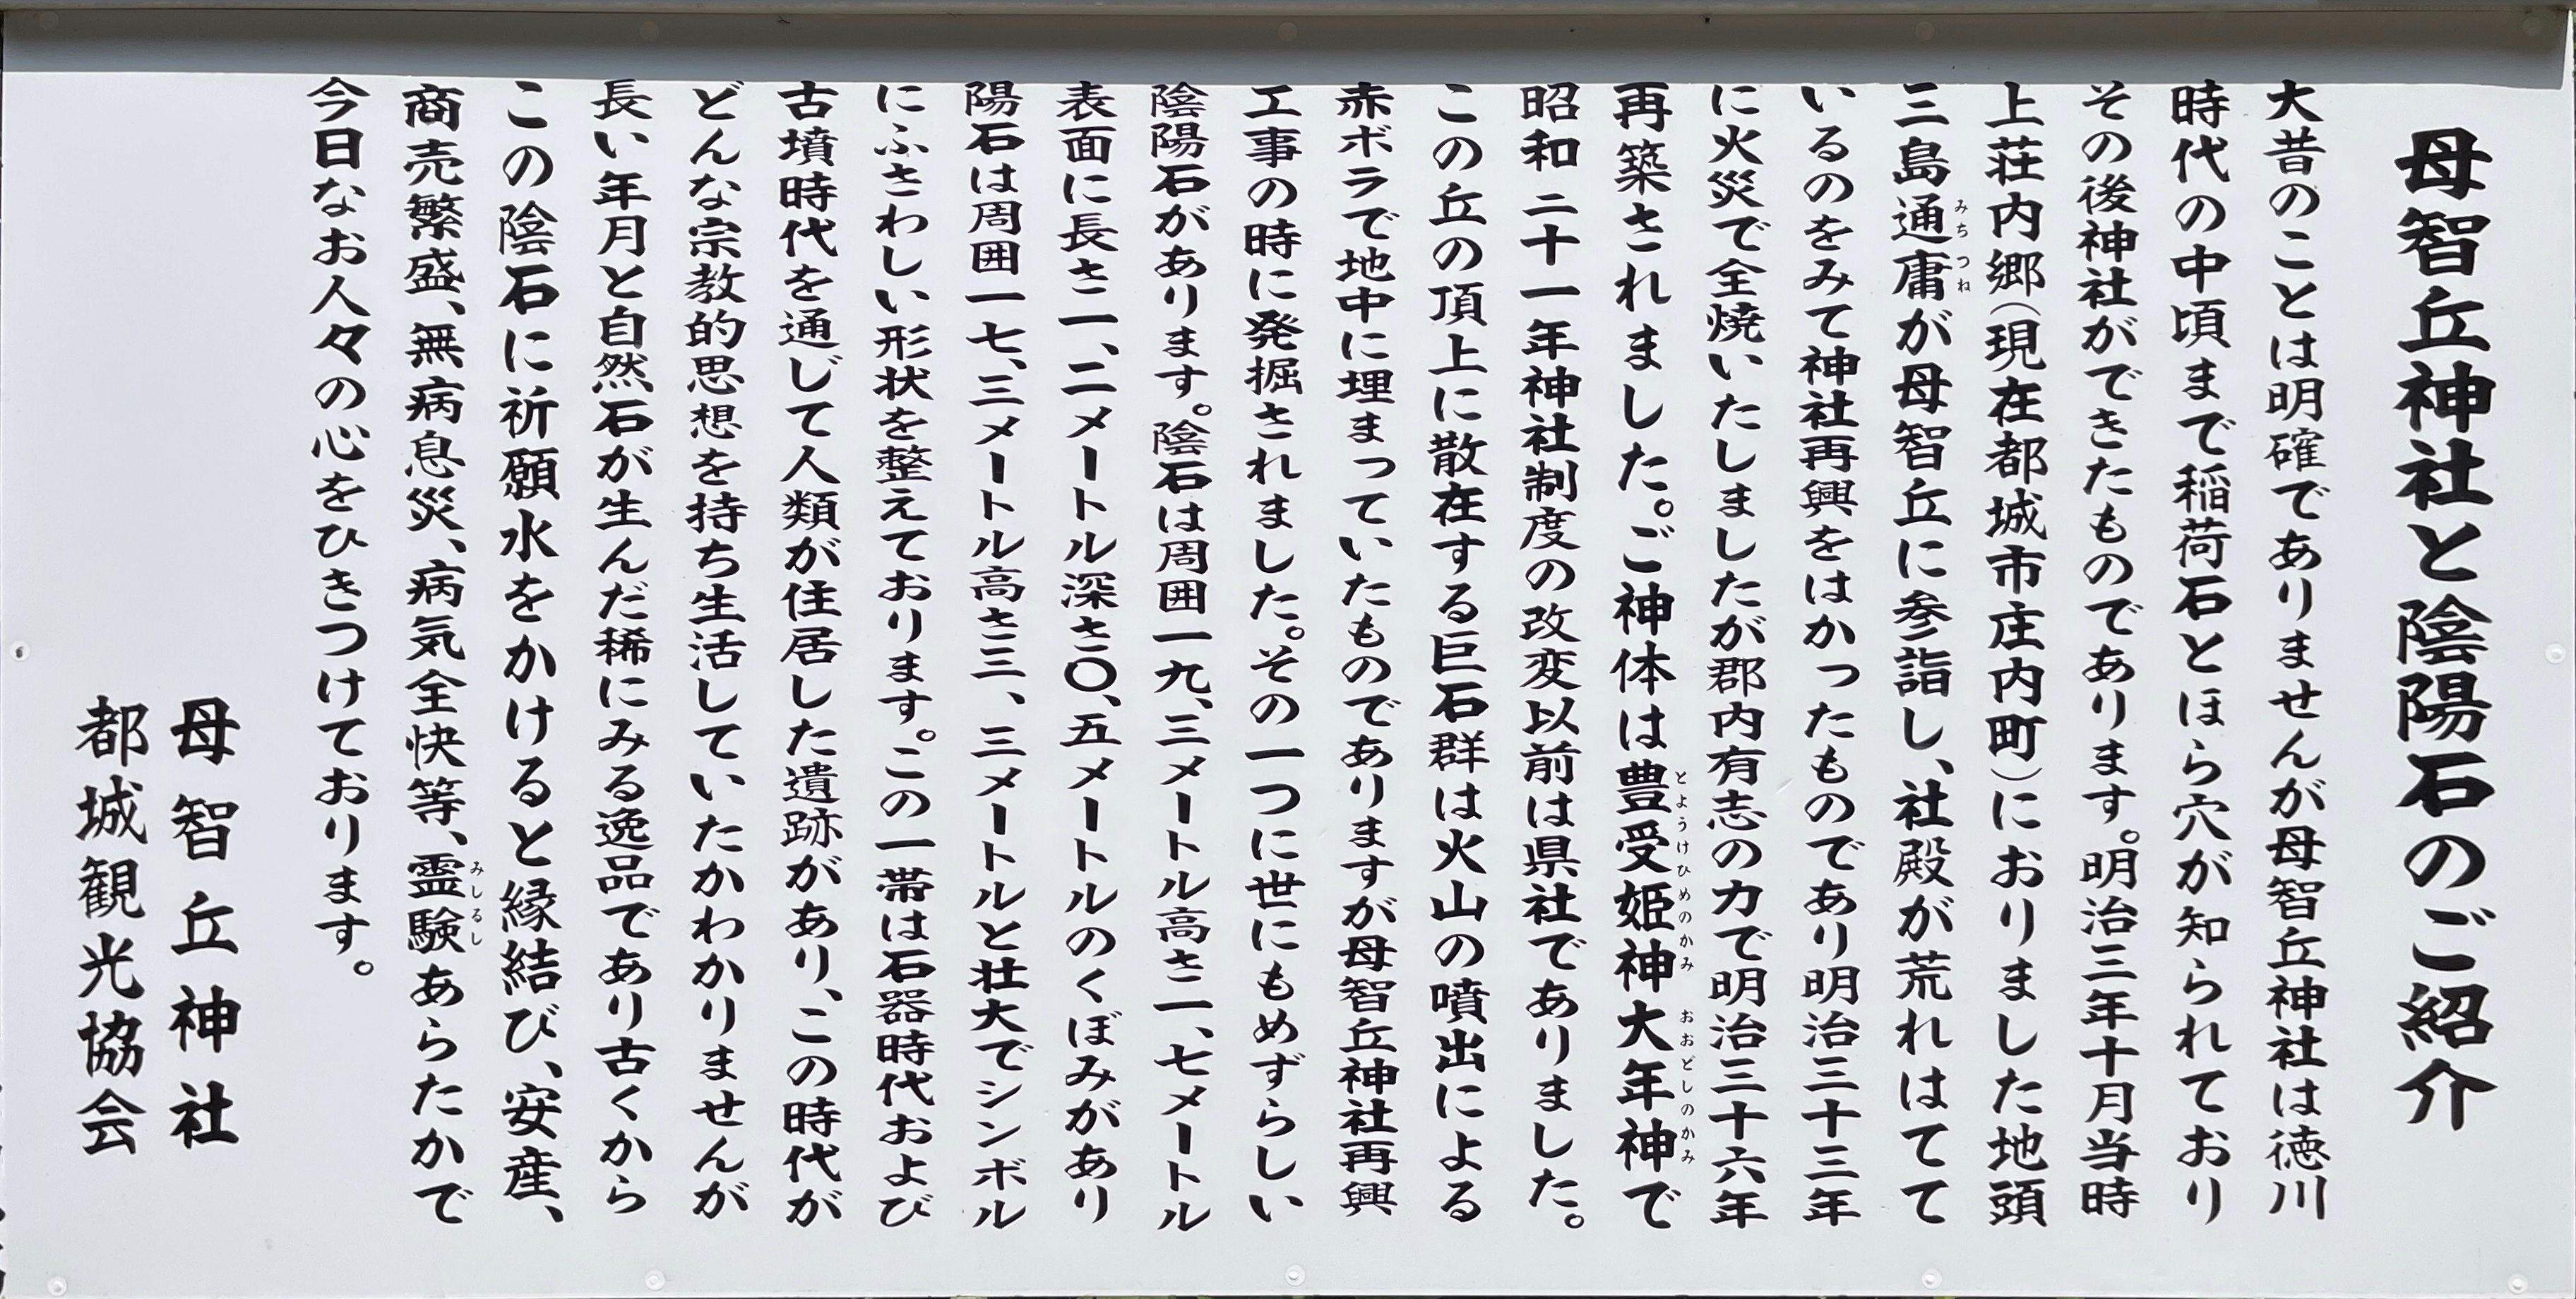 母智丘神社と陰陽石のご紹介
大昔のことは明確でありませんが母智丘神社は徳川
時代の中頃まで稲荷石とほら穴が知られており
その後神社ができたものであります。明治三年十月当時
上荘内郷(現在都城市庄内町)におりました地頭
三島通庸が母智丘に参詣し、社殿が荒れはてて
みちつね
いるのをみて神社再興をはかったものであり明治三十三年
に火災で全焼いたしましたが郡内有志の力で明治三十六年
再築されました。ご神体は豊受姫神大年神で
とようけひめのかみ おおどしのかみ
昭和二十一年神社制度の改変以前は県社でありました。
この丘の頂上に散在する巨石群は火山の噴出による
赤ボラで地中に埋まっていたものでありますが母智丘神社再興
工事の時に発掘されました。その一つに世にもめずらしい
陰陽石があります。陰石は周囲一九、三メートル高さ二、七メートル
表面に長さ一、二メートル深さ〇、五メートルのくぼみがあり
陽石は周囲一七、三メートル高さ三、三メートルと壮大でシンボル
にふさわしい形状を整えております。この一帯は石器時代および
古墳時代を通じて人類が住居した遺跡があり、この時代が
どんな宗教的思想を持ち生活していたかわかりませんが
長い年月と自然石が生んだ稀にみる逸品であり古くから
この陰石に祈願水をかけると縁結び、安産、
商売繁盛、無病息災、病気全快等、霊験あらたかで
みしるし
今日なお人々の心をひきつけております。
母智丘神社
都城観光協会